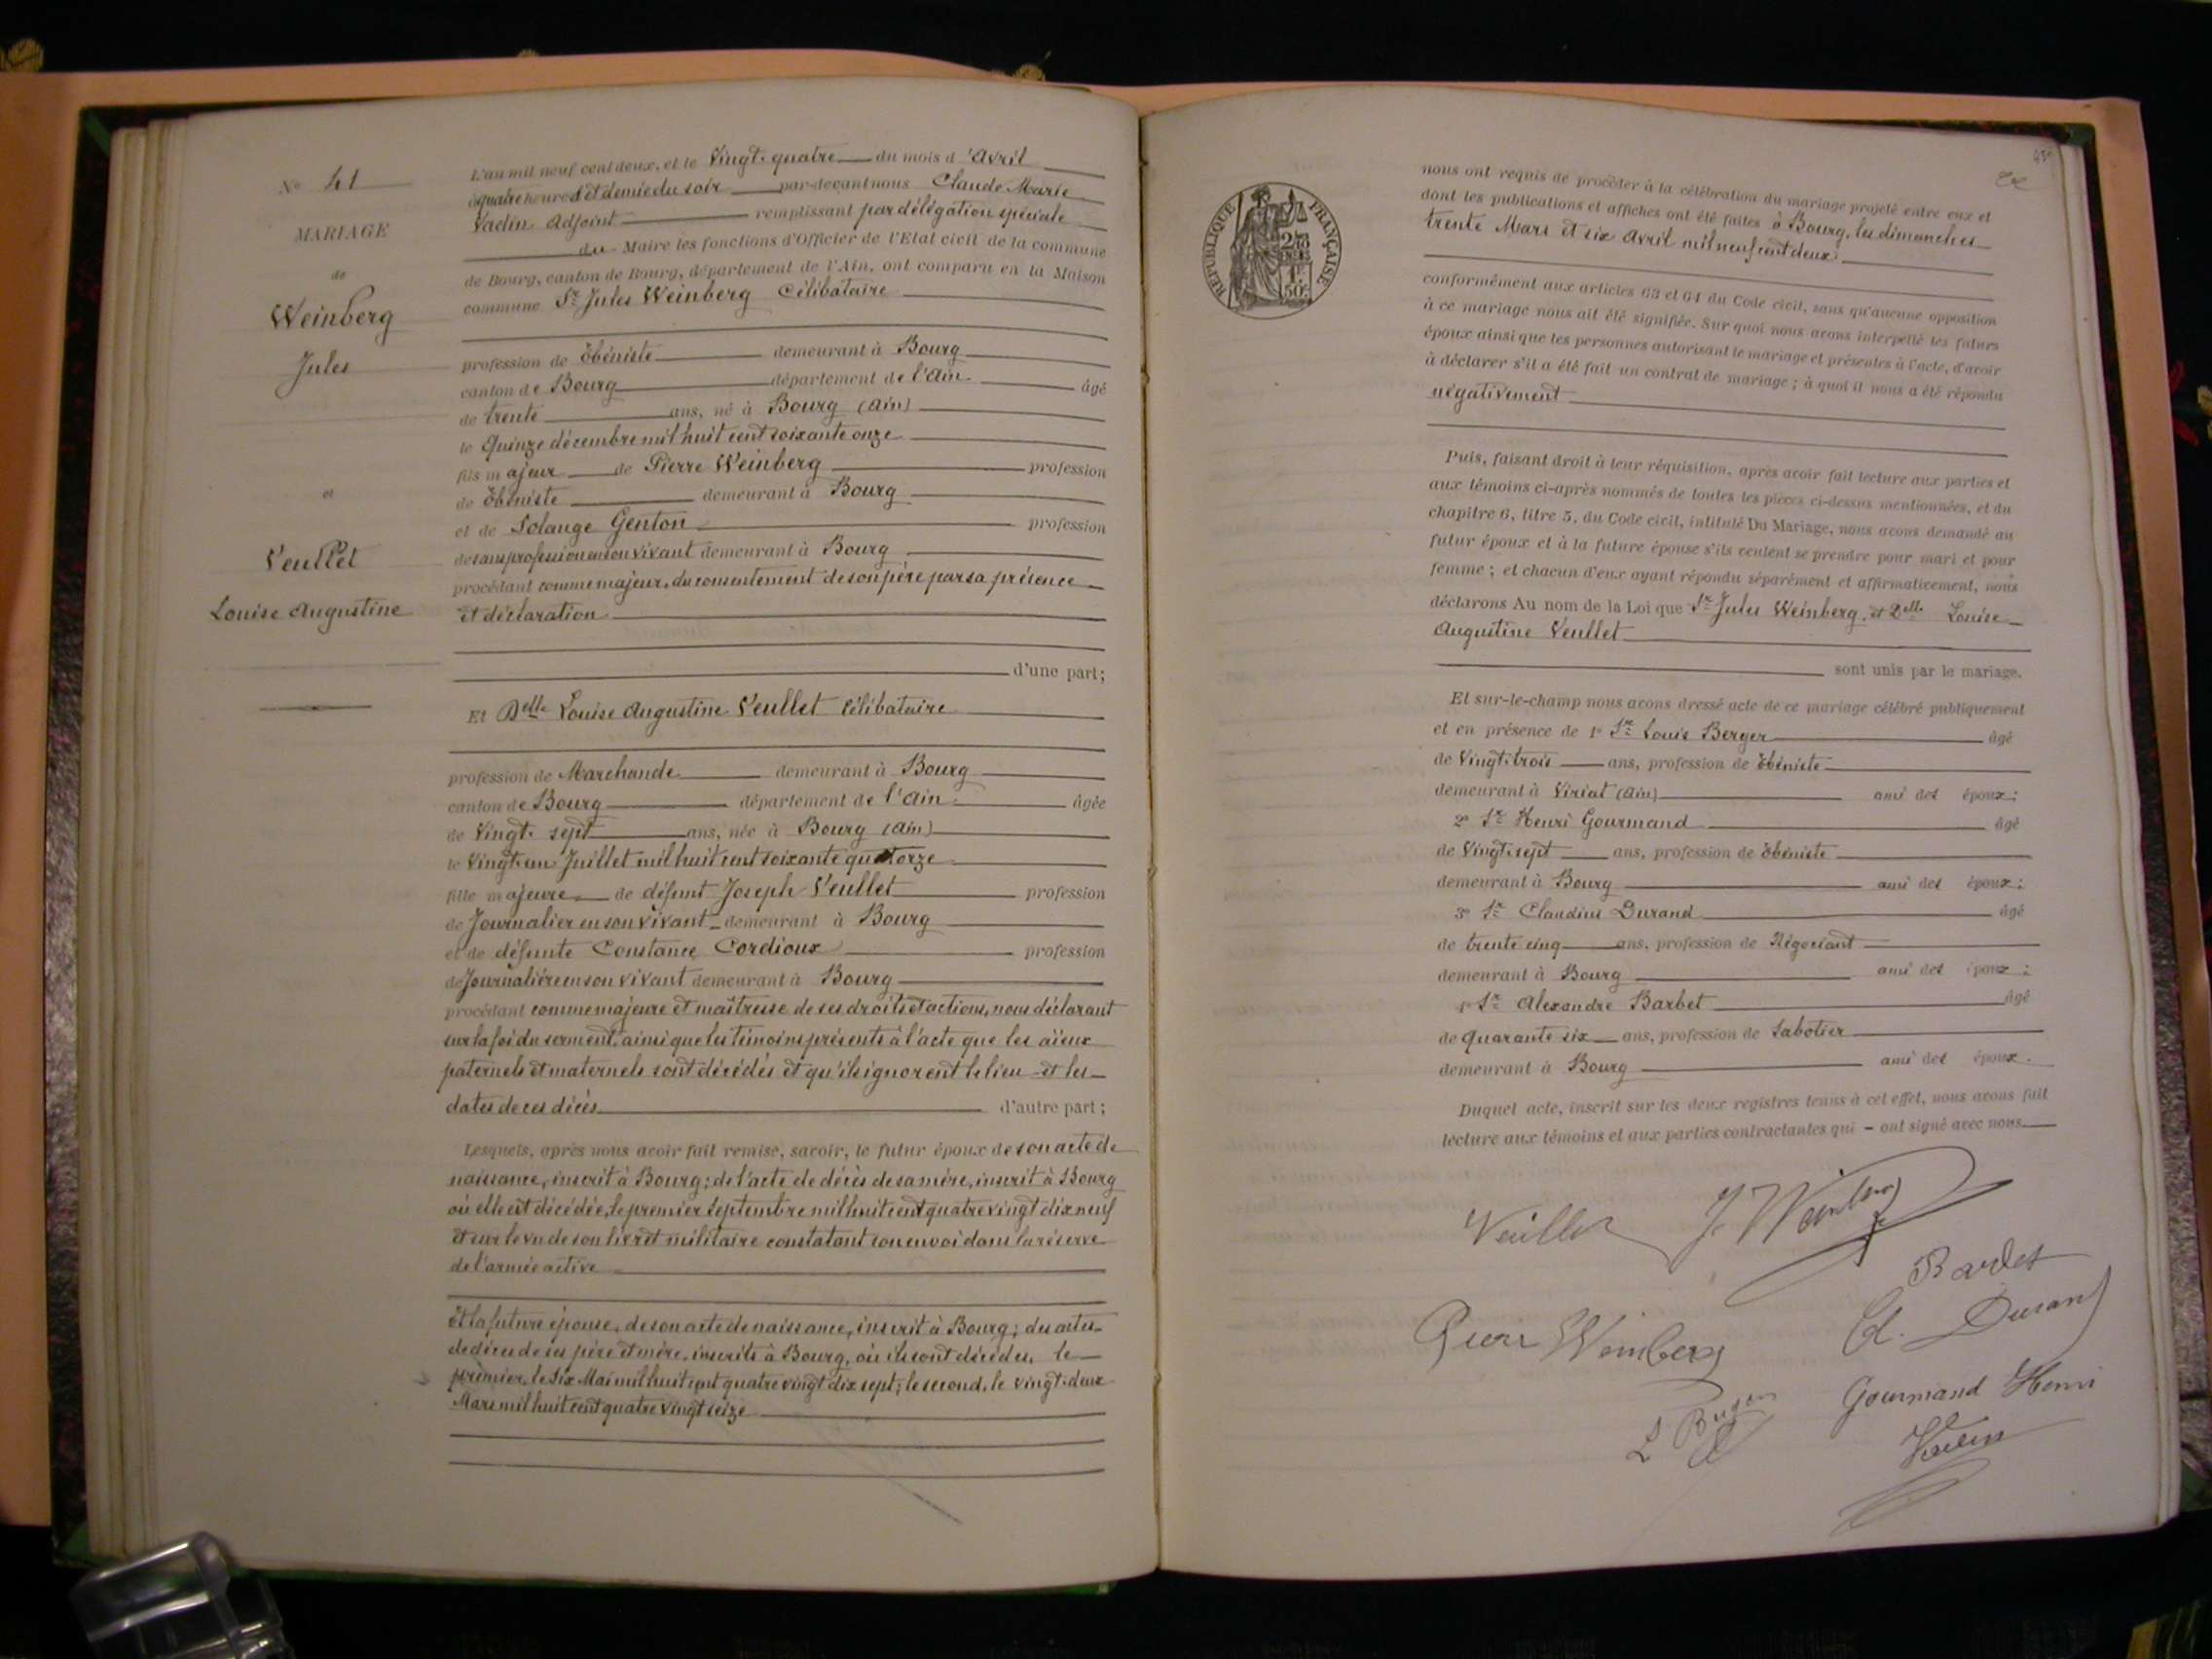 N° 41
MARIAGE
de
Weinberg
Jules
et
Veullet
Louise Augustine
L'an mil neuf cent deux, et le Vingt-quatre du mois d'Avril
à quatre heures et demie du soir par-devant nous Claude Marie
Vaclin Adjoint remplissant par délégation spéciale
du Maire les fonctions d'Officier de l'Etat civil de la commune
de Bourg, canton de Bourg, département de l'Ain, ont comparu en la Maison
commune Sr Jules Weinberg Célibataire
profession de Ebéniste demeurant à Bourg
canton de Bourg département de l'Ain âgé
de trente ans, né à Bourg (Ain)
le Quinze décembre mil huit cent soixante onze
fils majeur de Pierre Weinberg profession
de Ebéniste demeurant à Bourg
et de Solange Genton profession
de sans profession en son vivant demeurant à Bourg
procédant comme majeur, du consentement de son père par sa présence
et déclaration
d'une part;
Et Delle Louise Augustine Veullet Célibataire
profession de Marchande demeurant à Bourg
canton de Bourg département de l'Ain âgée
de Vingt-sept ans, née à Bourg (Ain)
le Vingt-un Juillet mil huit cent soixante quatorze
fille majeure de défunt Joseph Veullet profession
de Journalier en son vivant demeurant à Bourg
et de défunte Constance Cordioux profession
de Journalière en son vivant demeurant à Bourg
procédant comme majeure et maîtresse de ses droits et actions, nous déclarant
sur la foi du serment, ainsi que les témoins présents à l'acte que les aïeux
paternels et maternels sont décédés et qu'ils ignorent le lieu et les
dates de ces décès d'autre part;
Lesquels, après nous avoir fait remise, savoir, le futur époux de son acte de
naissance, inscrit à Bourg; de l'acte de décès de sa mère, inscrit à Bourg
où elle est décédée, le premier Septembre mil huit cent quatre vingt dix neuf
et sur le vu de son livret militaire constatant son envoi dans la réserve
de l'armée active
Et la future épouse, de son acte de naissance, inscrit à Bourg; des actes
de décès de ses père et mère, inscrits à Bourg, où ils sont décédés, le
premier, le Six Mai mil huit cent quatre vingt dix sept; le second, le vingt-deux
Mars mil huit cent quatre vingt seize
RÉPUBLIQUE FRANÇAISE
nous ont requis de procéder à la célébration du mariage projeté entre eux et
dont les publications et affiches ont été faites à Bourg, les dimanches
trente Mars et six Avril mil neuf cent deux
conformément aux articles 63 et 64 du Code civil, sans qu'aucune opposition
à ce mariage nous ait été signifiée. Sur quoi nous avons interpellé les futurs
époux ainsi que les personnes autorisant le mariage et présentes à l'acte, d'avoir
à déclarer s'il a été fait un contrat de mariage; à quoi il nous a été répondu
négativement
Puis, faisant droit à leur réquisition, après avoir fait lecture aux parties et
aux témoins ci-après nommés de toutes les pièces ci-dessus mentionnées, et du
chapitre 6, titre 5, du Code civil, intitulé Du Mariage, nous avons demandé au
futur époux et à la future épouse s'ils veulent se prendre pour mari et pour
femme; et chacun d'eux ayant répondu séparément et affirmativement, nous
déclarons Au nom de la Loi que Sr Jules Weinberg, et Delle Louise
Augustine Veullet
sont unis par le mariage.
Et sur-le-champ nous avons dressé acte de ce mariage célébré publiquement
et en présence de 1° Sr Louis Berger âgé
de Vingt-trois ans, profession de Ebéniste
demeurant à Viriat (Ain) ami des époux;
2° Sr Henri Gourmand âgé
de Vingt-sept ans, profession de Ebéniste
demeurant à Bourg ami des époux;
3° Sr Claudius Durand âgé
de trente cinq ans, profession de Négociant
demeurant à Bourg ami des époux;
4° Sr Alexandre Barbet âgé
de Quarante six ans, profession de Sabotier
demeurant à Bourg ami des époux.
Duquel acte, inscrit sur les deux registres tenus à cet effet, nous avons fait
lecture aux témoins et aux parties contractantes qui - ont signé avec nous
Veullet J. Weinberg
Barbet
Pierre Weinberg Cl. Durand
L Berger Gourmand Henri
Vaclin